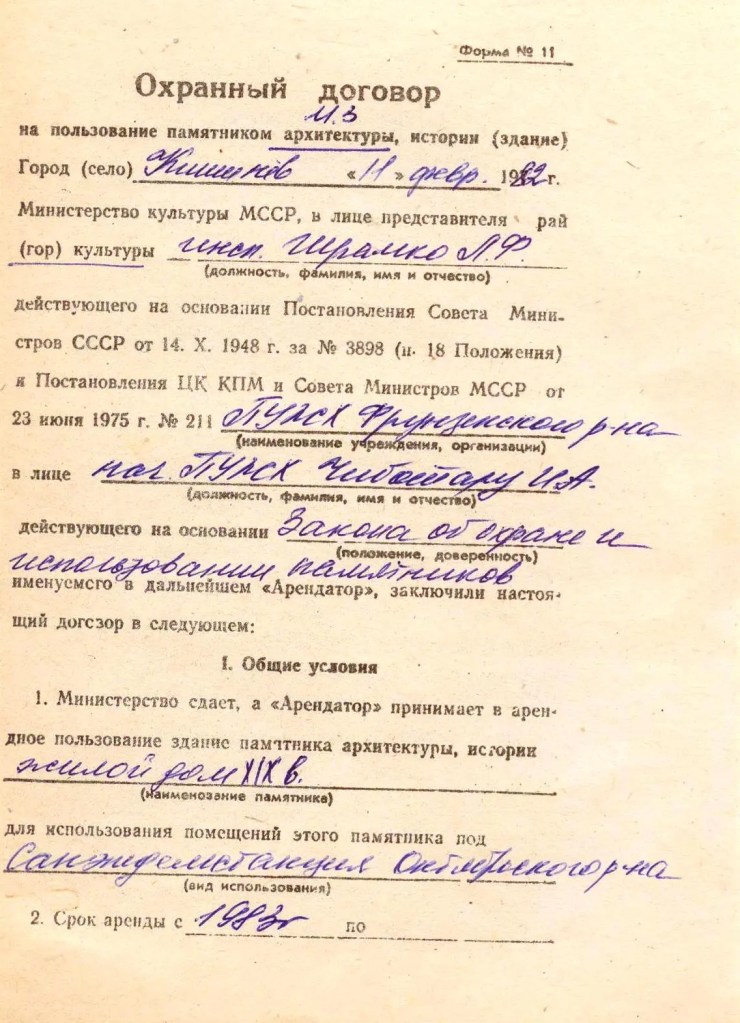 Форма № 11
Охранный договор
М.З
на пользование памятником архитектуры, истории (здание)
Город (село) Кишинёв «11» февр. 1982 г.
Министерство культуры МССР, в лице представителя рай
(гор) культуры инсп. Шрамко Л.Ф.
(должность, фамилия, имя и отчество)
действующего на основании Постановления Совета Мини-
стров СССР от 14. X. 1948 г. за № 3898 (п. 18 Положения)
и Постановления ЦК КПМ и Совета Министров МССР от
23 июня 1975 г. № 211 ПУЖХ Фрунзенского р-на
(наименование учреждения, организации)
в лице нач. ПУЖХ Чиботару И.А.
(должность, фамилия, имя и отчество)
действующего на основании Закона об охране и
(положение, доверенность)
использовании памятников
именуемого в дальнейшем «Арендатор», заключили настоя-
щий договор в следующем:
I. Общие условия
1. Министерство сдает, а «Арендатор» принимает в арен-
дное пользование здание памятника архитектуры, истории
жилой дом XIX в.
(наименование памятника)
для использования помещений этого памятника под
Санэпидемстанция Октябрьского р-на
(вид использования)
2. Срок аренды с 1983г по